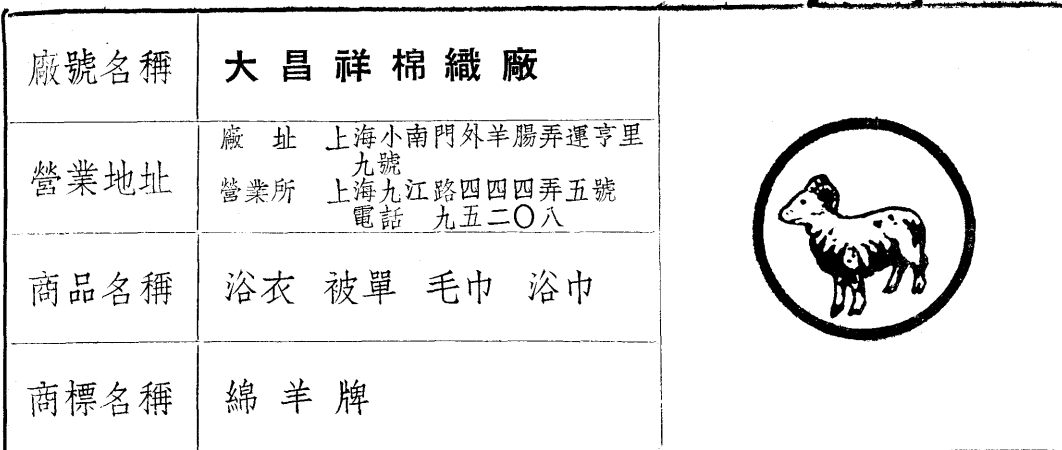 廠號名稱 大昌祥棉織廠
營業地址
廠 址 上海小南門外羊腸弄運亨里
九號
營業所 上海九江路四四四弄五號
電話 九五二〇八
商品名稱 浴衣 被單 毛巾 浴巾
商標名稱 綿羊牌